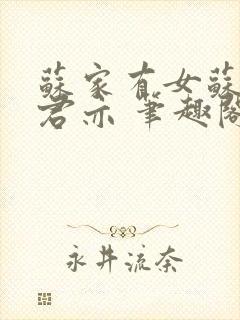 蘇家有女蘇
君亦 筆趣閣
永井流奈